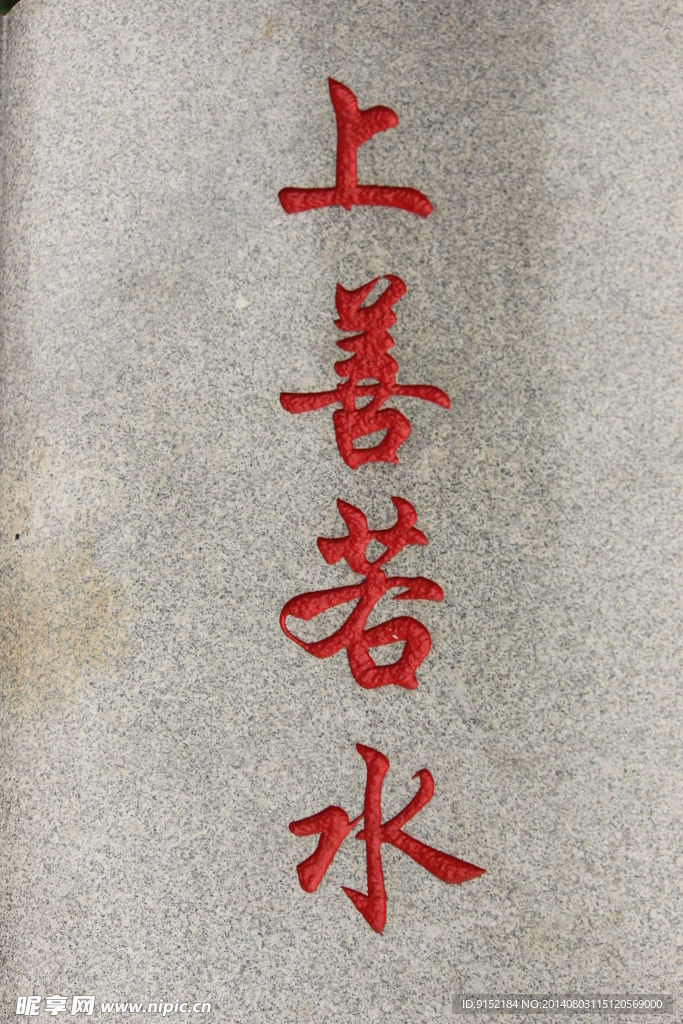 上善若水
昵享网 www.nipic.cn
ID:9152184 NO:20140803115120569000